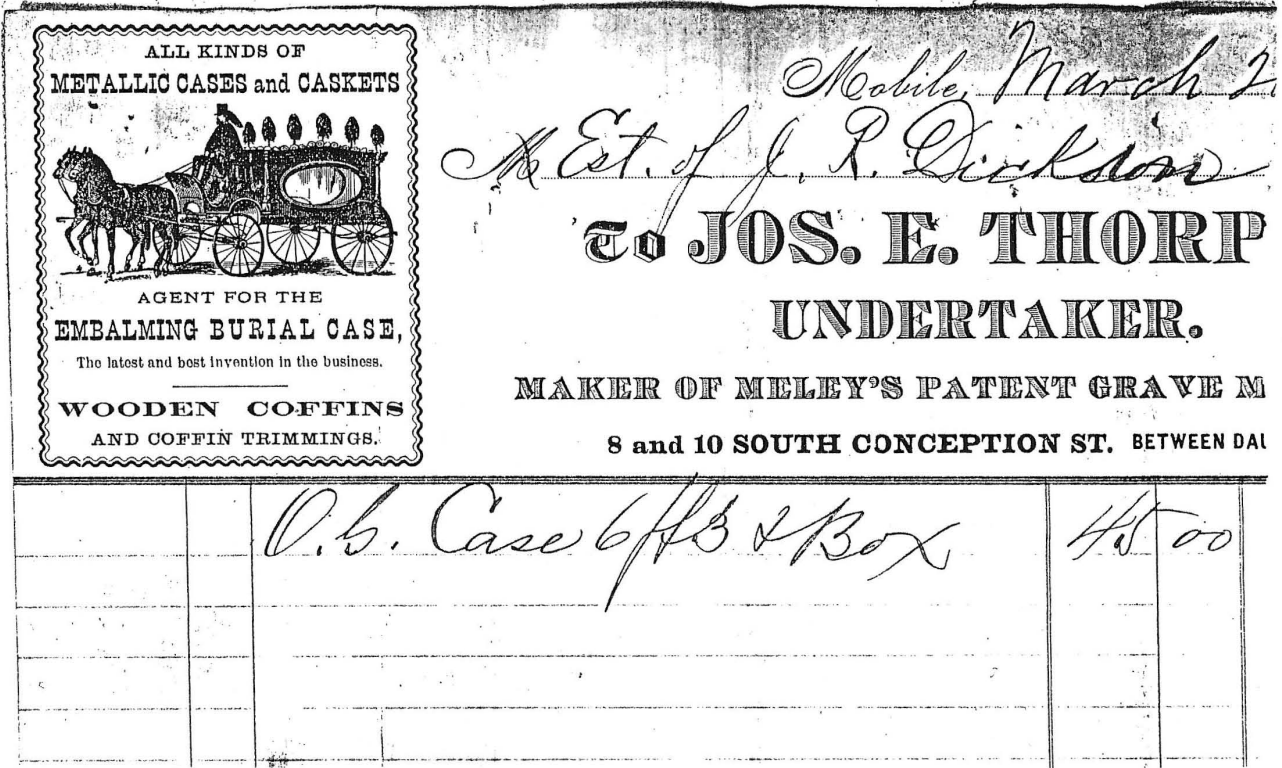 ALL KINDS OF
METALLIC CASES and CASKETS
AGENT FOR THE
EMBALMING BURIAL CASE,
The latest and best invention in the business.
WOODEN COFFINS
AND COFFIN TRIMMINGS.
Mobile, March 2
M Est. of J. R. Dickson
To JOS. E. THORP
UNDERTAKER.
MAKER OF MELEY'S PATENT GRAVE M
8 and 10 SOUTH CONCEPTION ST. BETWEEN DAU
O.G. Case 6 ft 3 & Box 45 00